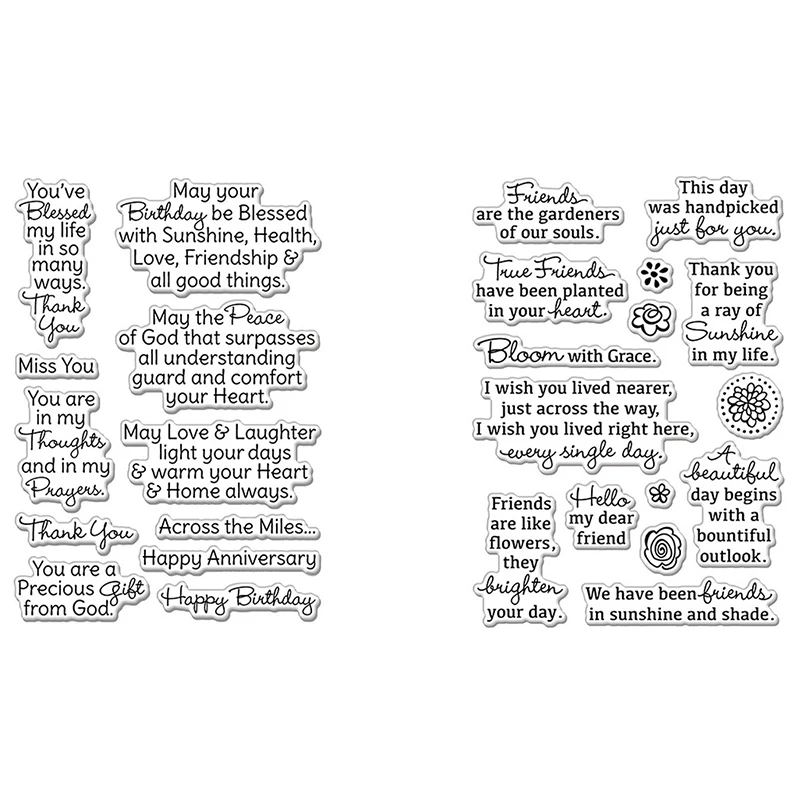 You've
Blessed
my life
in so
many
ways.
Thank
You
May your
Birthday be Blessed
with Sunshine, Health,
Love, Friendship &
all good things.
May the Peace
of God that surpasses
all understanding
guard and comfort
your Heart.
Miss You
You are
in my
Thoughts
and in my
Prayers.
May Love & Laughter
light your days
& warm your Heart
& Home always.
Thank You
Across the Miles...
Happy Anniversary
You are a
Precious Gift
from God.
Happy Birthday
Friends
are the gardeners
of our souls.
This day
was handpicked
just for you.
True Friends
have been planted
in your heart.
Thank you
for being
a ray of
Sunshine
in my life.
Bloom with Grace.
I wish you lived nearer,
just across the way,
I wish you lived right here,
every single day.
A
beautiful
day begins
with a
bountiful
outlook.
Friends
are like
flowers,
they
brighten
your day.
Hello
my dear
friend
We have been friends
in sunshine and shade.